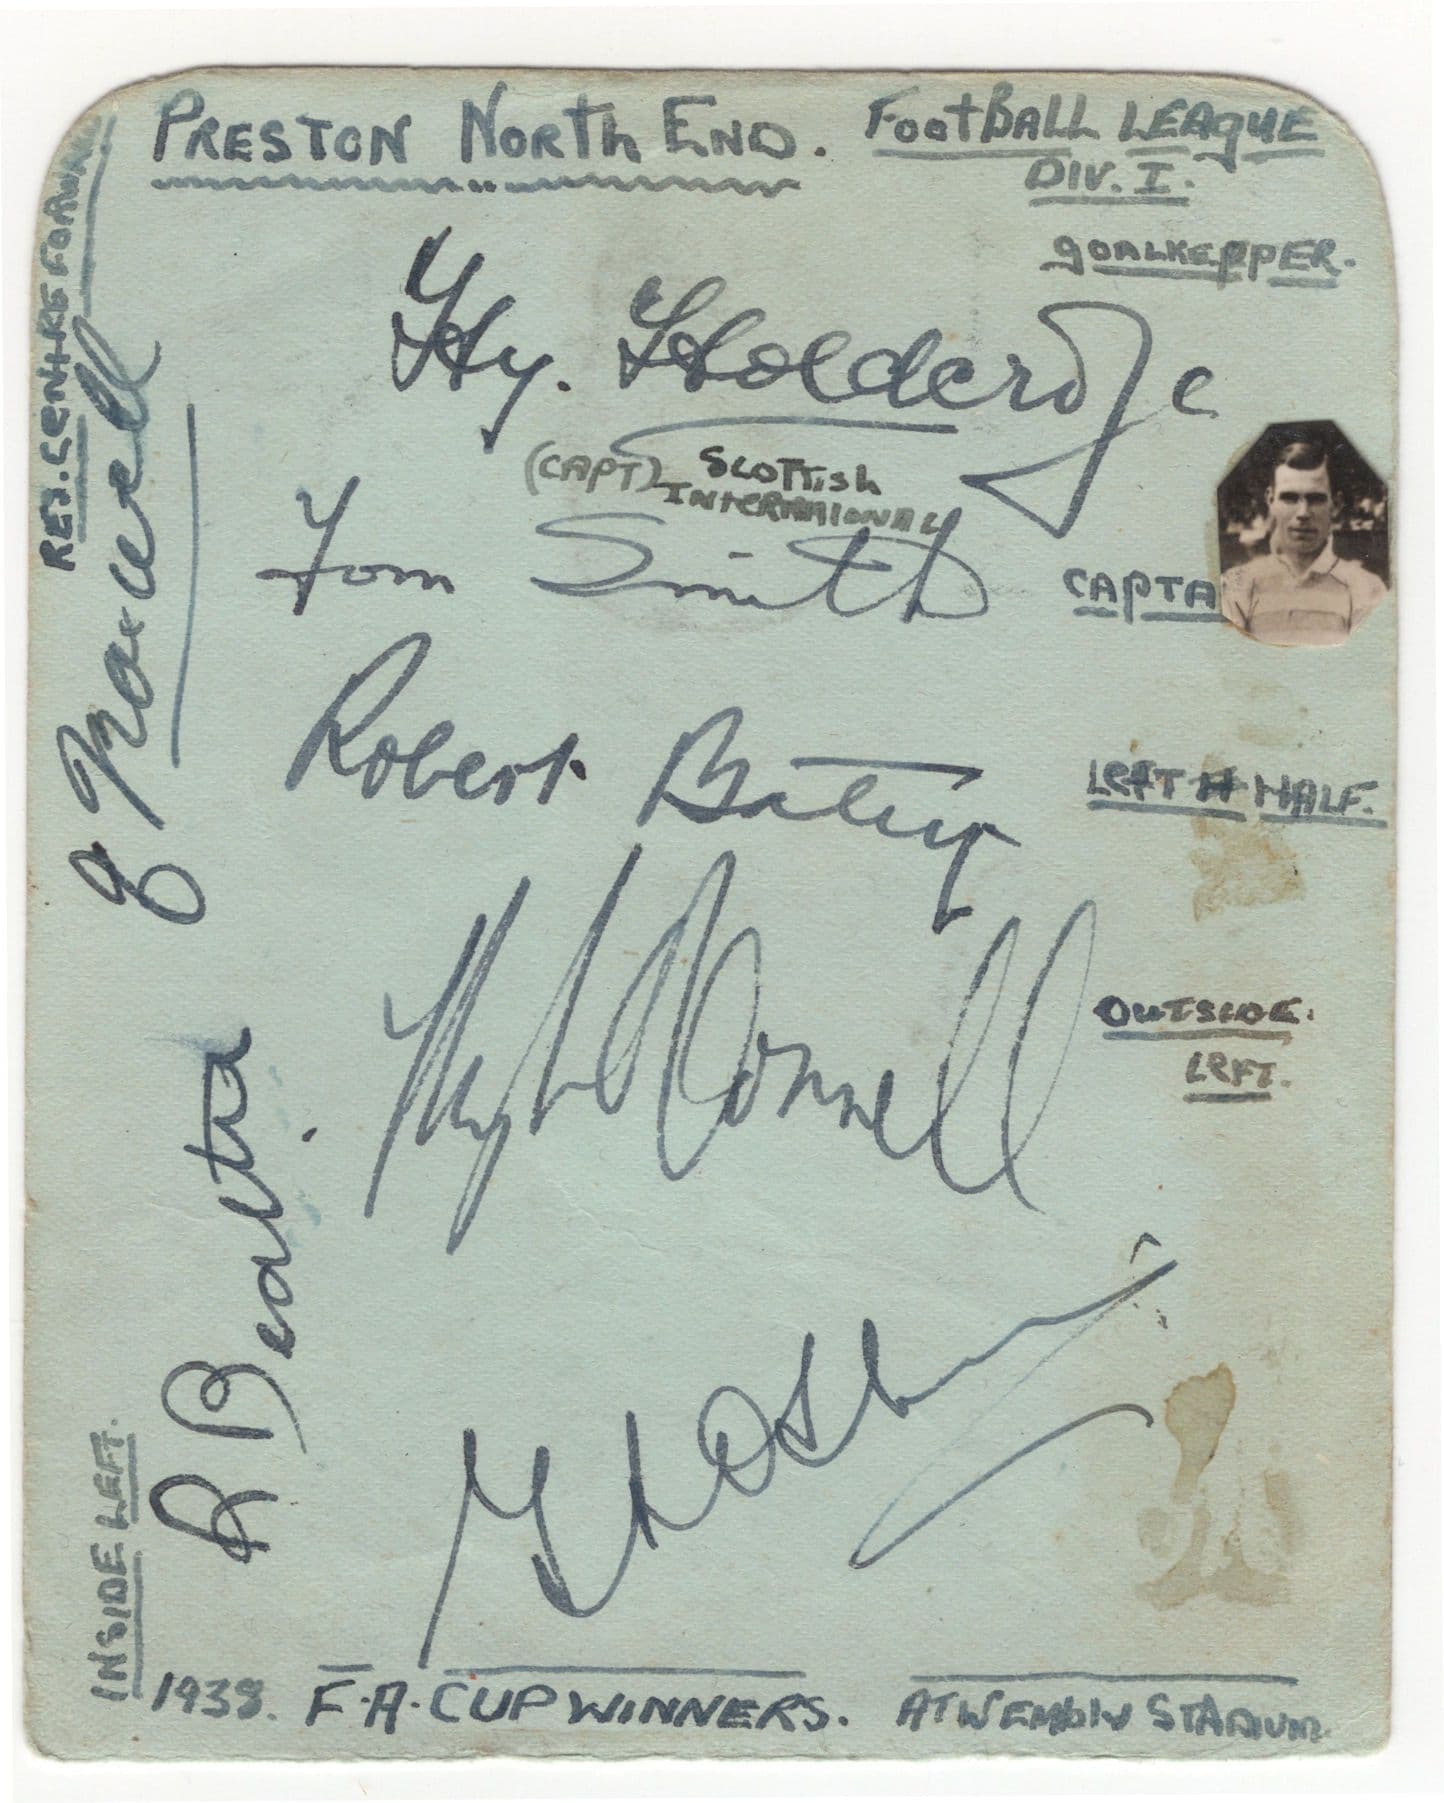 PRESTON NORTH END. FOOTBALL LEAGUE
DIV. I.
GOALKEPPER.
Hy. Holdcroft
(CAPT) SCOTTISH
INTERNAIONAL
Tom Smith
CAPTA
Robert Batey
LEFT H HALF.
Hugh O'Donnell
OUTSIDE.
LEFT.
1938. F.A. CUP WINNERS. AT WEMBLY STADIUM
RES. CENTRE FORWARD
Maxwell
R Beattie
INSIDE LEFT.